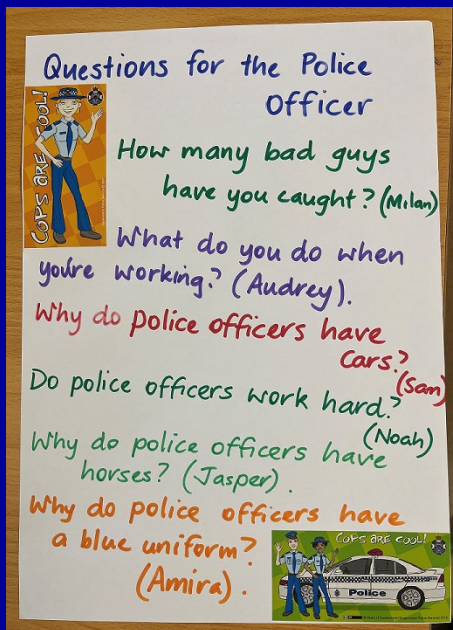 Questions for the Police
Officer
COPS ARE COOL!
How many bad guys
have you caught? (Milan)
What do you do when
you're working? (Audrey).
Why do police officers have
cars?
(Sam)
Do police officers work hard?
(Noah)
Why do police officers have
horses? (Jasper).
Why do police officers have
a blue uniform?
(Amira).
COPS ARE COOL!
Police